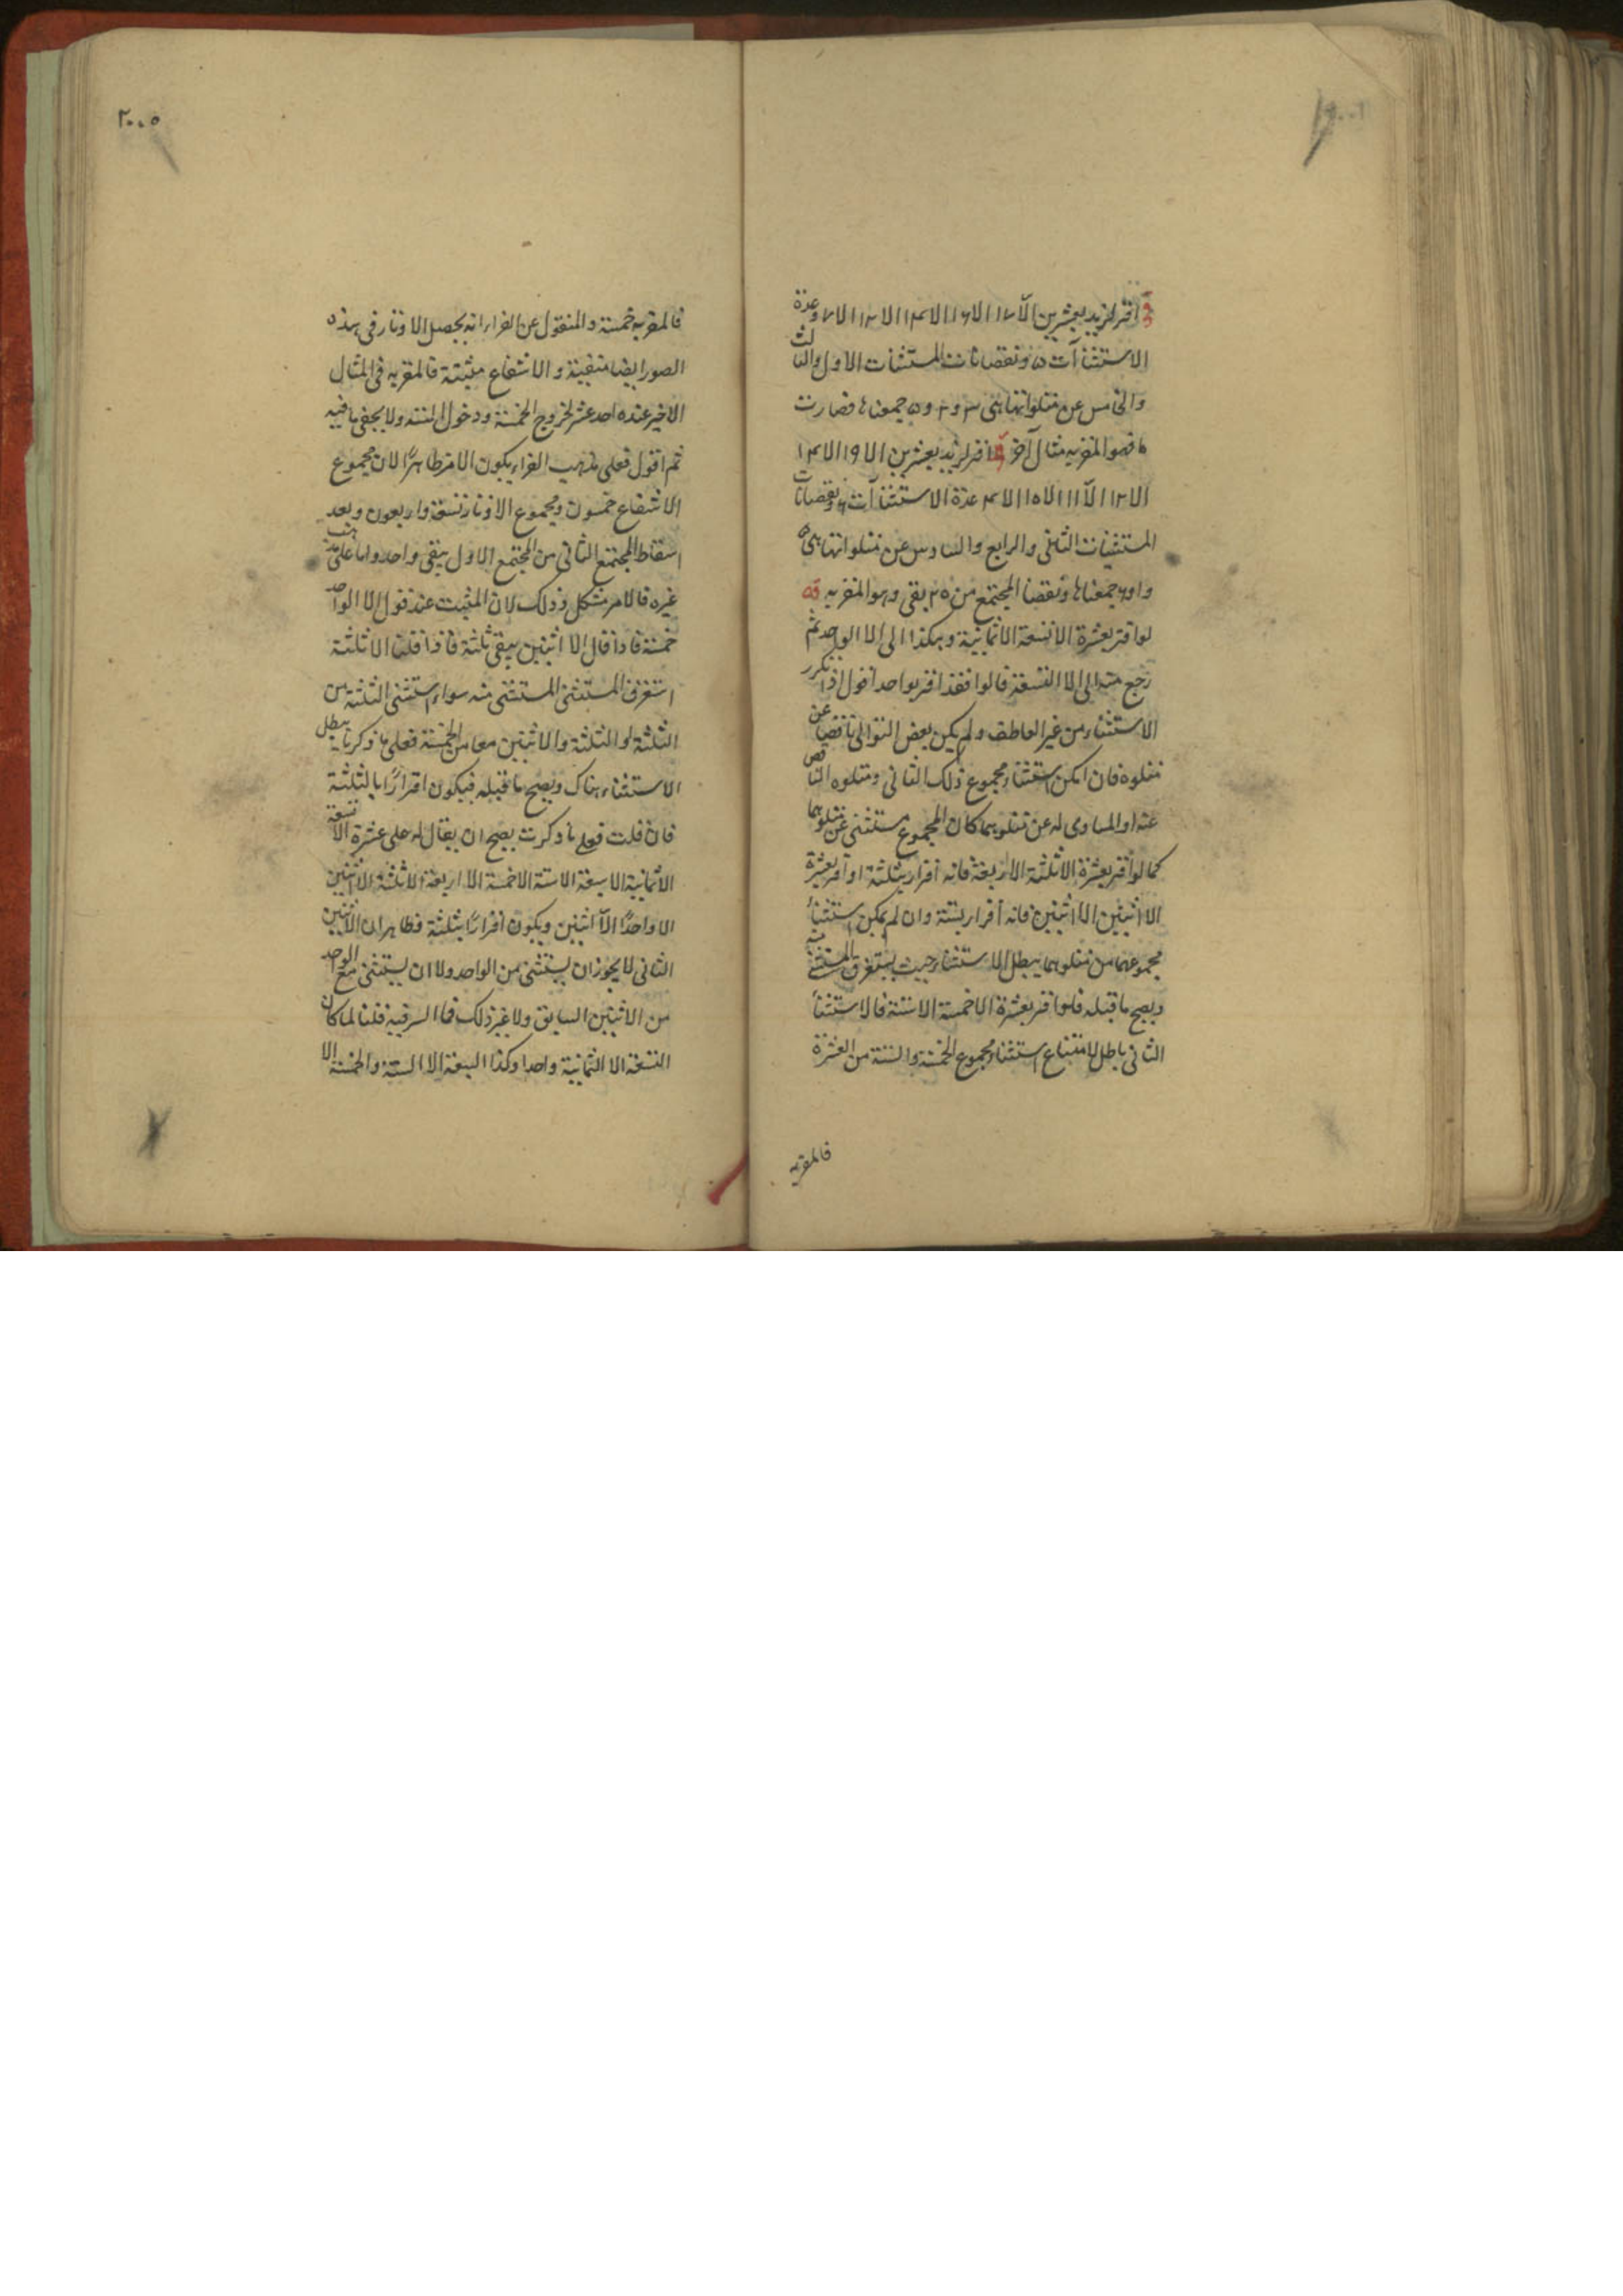 اقر لزيد بعشرين الا ١٧ الا ١٦ الا ١٤ الا ١٢ الا ٧ وعدة
الاستثناآت ٥ ونقصانات المستثنات الاول والثالث
والخامس عن متلواتها هى ٣ و ٢ و ٥ جمعناها فصارت
فهو المقر به مثال آخر اقر لزيد بعشرين الا ١٩ الا ١٤
الا ١٢ الا ١١ الا ١٥ الا ٤ عدة الاستثناآت ٦ ونقصانات
المستثنيات الثانى والرابع والسادس عن متلواتها هى ٥
و١ و جمعناها ونقصنا المجتمع من ٢٠ بقى وهو المقر به
لو اقر بعشرة الا تسعة الا ثمانية وهكذا الى الا الواحد ثم
رجع منه الى الا التسعة قالوا فقد اقر بواحد اقول اذا تكرر
الاستثناء من غير العاطف ولم يكن بعض التوالى ناقصا عن
متلوه فان امكن استثناء مجموع ذلك الثانى ومتلوه الناقص
عنه او المساوى له عن متلوهما كان المجموع مستثنى عن متلوهما
كما لو اقر بعشرة الا ثلثة الا اربعة فانه اقرار بثلثة او اقر بعشرة
الا اثنين الا اثنين فانه اقرار بستة وان لم يمكن استثناء
مجموعهما من متلوهما يبطل الاستثناء حيث يستغرق المستثنى منه
ويصح ما قبله فلو اقر بعشرة الا خمسة الا ستة فالاستثناء
الثانى باطل لامتناع استثناء مجموع الخمسة والستة من العشرة
فالمقر به
٢٠٠٥
فالمقر به خمسة والمنقول عن الفراء انه يجعل الاوتار فى هذه
الصور ايضا منفية والاشفاع مثبتة فالمقر به فى المثال
الاخير عنده احد عشر لخروج الخمسة ودخول الستة ولا يخفى ما فيه
ثم اقول فعلى مذهب الفراء يكون الامر ظاهرًا لان مجموع
الاشفاع خمسون ومجموع الاوتار تسعة واربعون وبعد
اسقاط المجتمع الثانى من المجتمع الاول يبقى واحد واما على مذهب
غيره فالامر مشكل وذلك لان المثبت عند قول الا الواحد
خمسة فاذا قال الا اثنين يبقى ثلثة فاذا قلنا الا ثلثة
استغرق المستثنى المستثنى منه سواء استثنى الثلثة من
الثلثة او الثلثة والاثنين معا من الخمسة فعلى ما ذكرنا يبطل
الاستثناء هناك ويصح ما قبله فيكون اقرارًا بالثلثة
فان قلت فعلى ما ذكرت يصح ان يقال له على عشرة الا تسعة
الا ثمانية الا سبعة الا ستة الا خمسة الا اربعة الا ثلثة الا اثنين
الا واحدًا الا اثنين ويكون اقرارًا بثلثة فظاهر ان الاثنين
الثانى لا يجوز ان يستثنى من الواحد ولا ان يستثنى مع الواحد
من الاثنين السابق ولا غير ذلك فما السر فيه قلنا لما كان
التسعة الا الثمانية واحدا وكذا السبعة الا الستة والخمسة الا